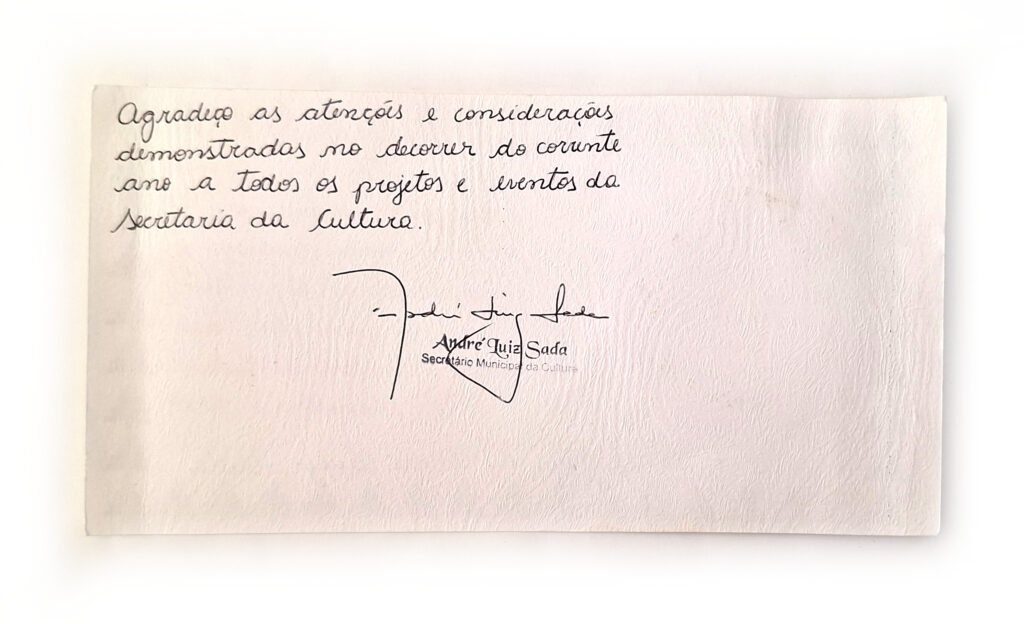 Agradeço as atenções e considerações
demonstradas no decorrer do corrente
ano a todos os projetos e eventos da
Secretaria da Cultura.
André Luiz Sada
André Luiz Sada
Secretário Municipal da Cultura